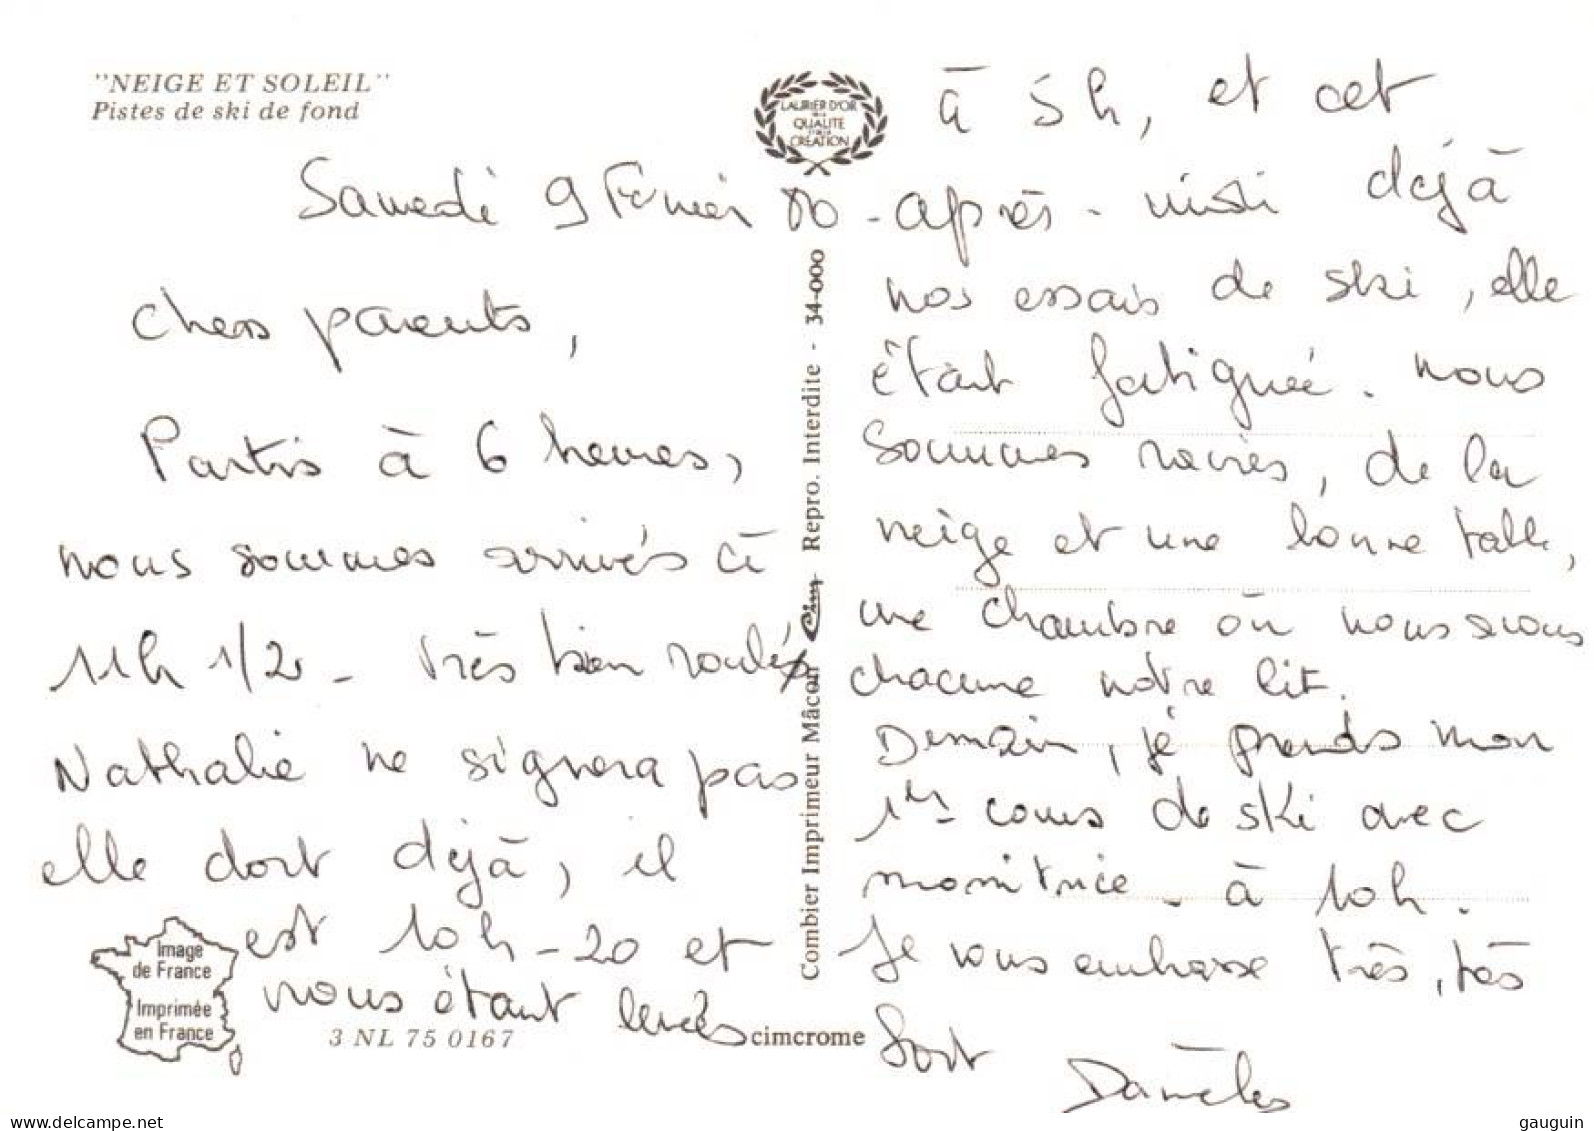 "NEIGE ET SOLEIL"
Pistes de ski de fond
LAURIER D'OR
DE LA
QUALITE
CREATION
Samedi 9 Février 80 -
chers parents,
Partis à 6 heures,
nous sommes arrivés à
11h 1/2 - très bien roulés
Nathalie ne signera pas
elle dort déjà, il
est 10h-20 et
nous étant levés
à 5h, et cet
après-midi déjà
nos essais de ski, elle
était fatiguée. nous
sommes ravies, de la
neige et une bonne table,
une chambre où nous avons
chacune notre lit.
Demain, je prends mon
1er cours de ski avec
monitrice - à 10h.
Je vous embrasse très, très
fort
Combier Imprimeur Mâcon Cim Repro. Interdite - 34-000
Image
de France
Imprimée
en France
3 NL 75 0167
cimcrome
www.delcampe.net
gauguin